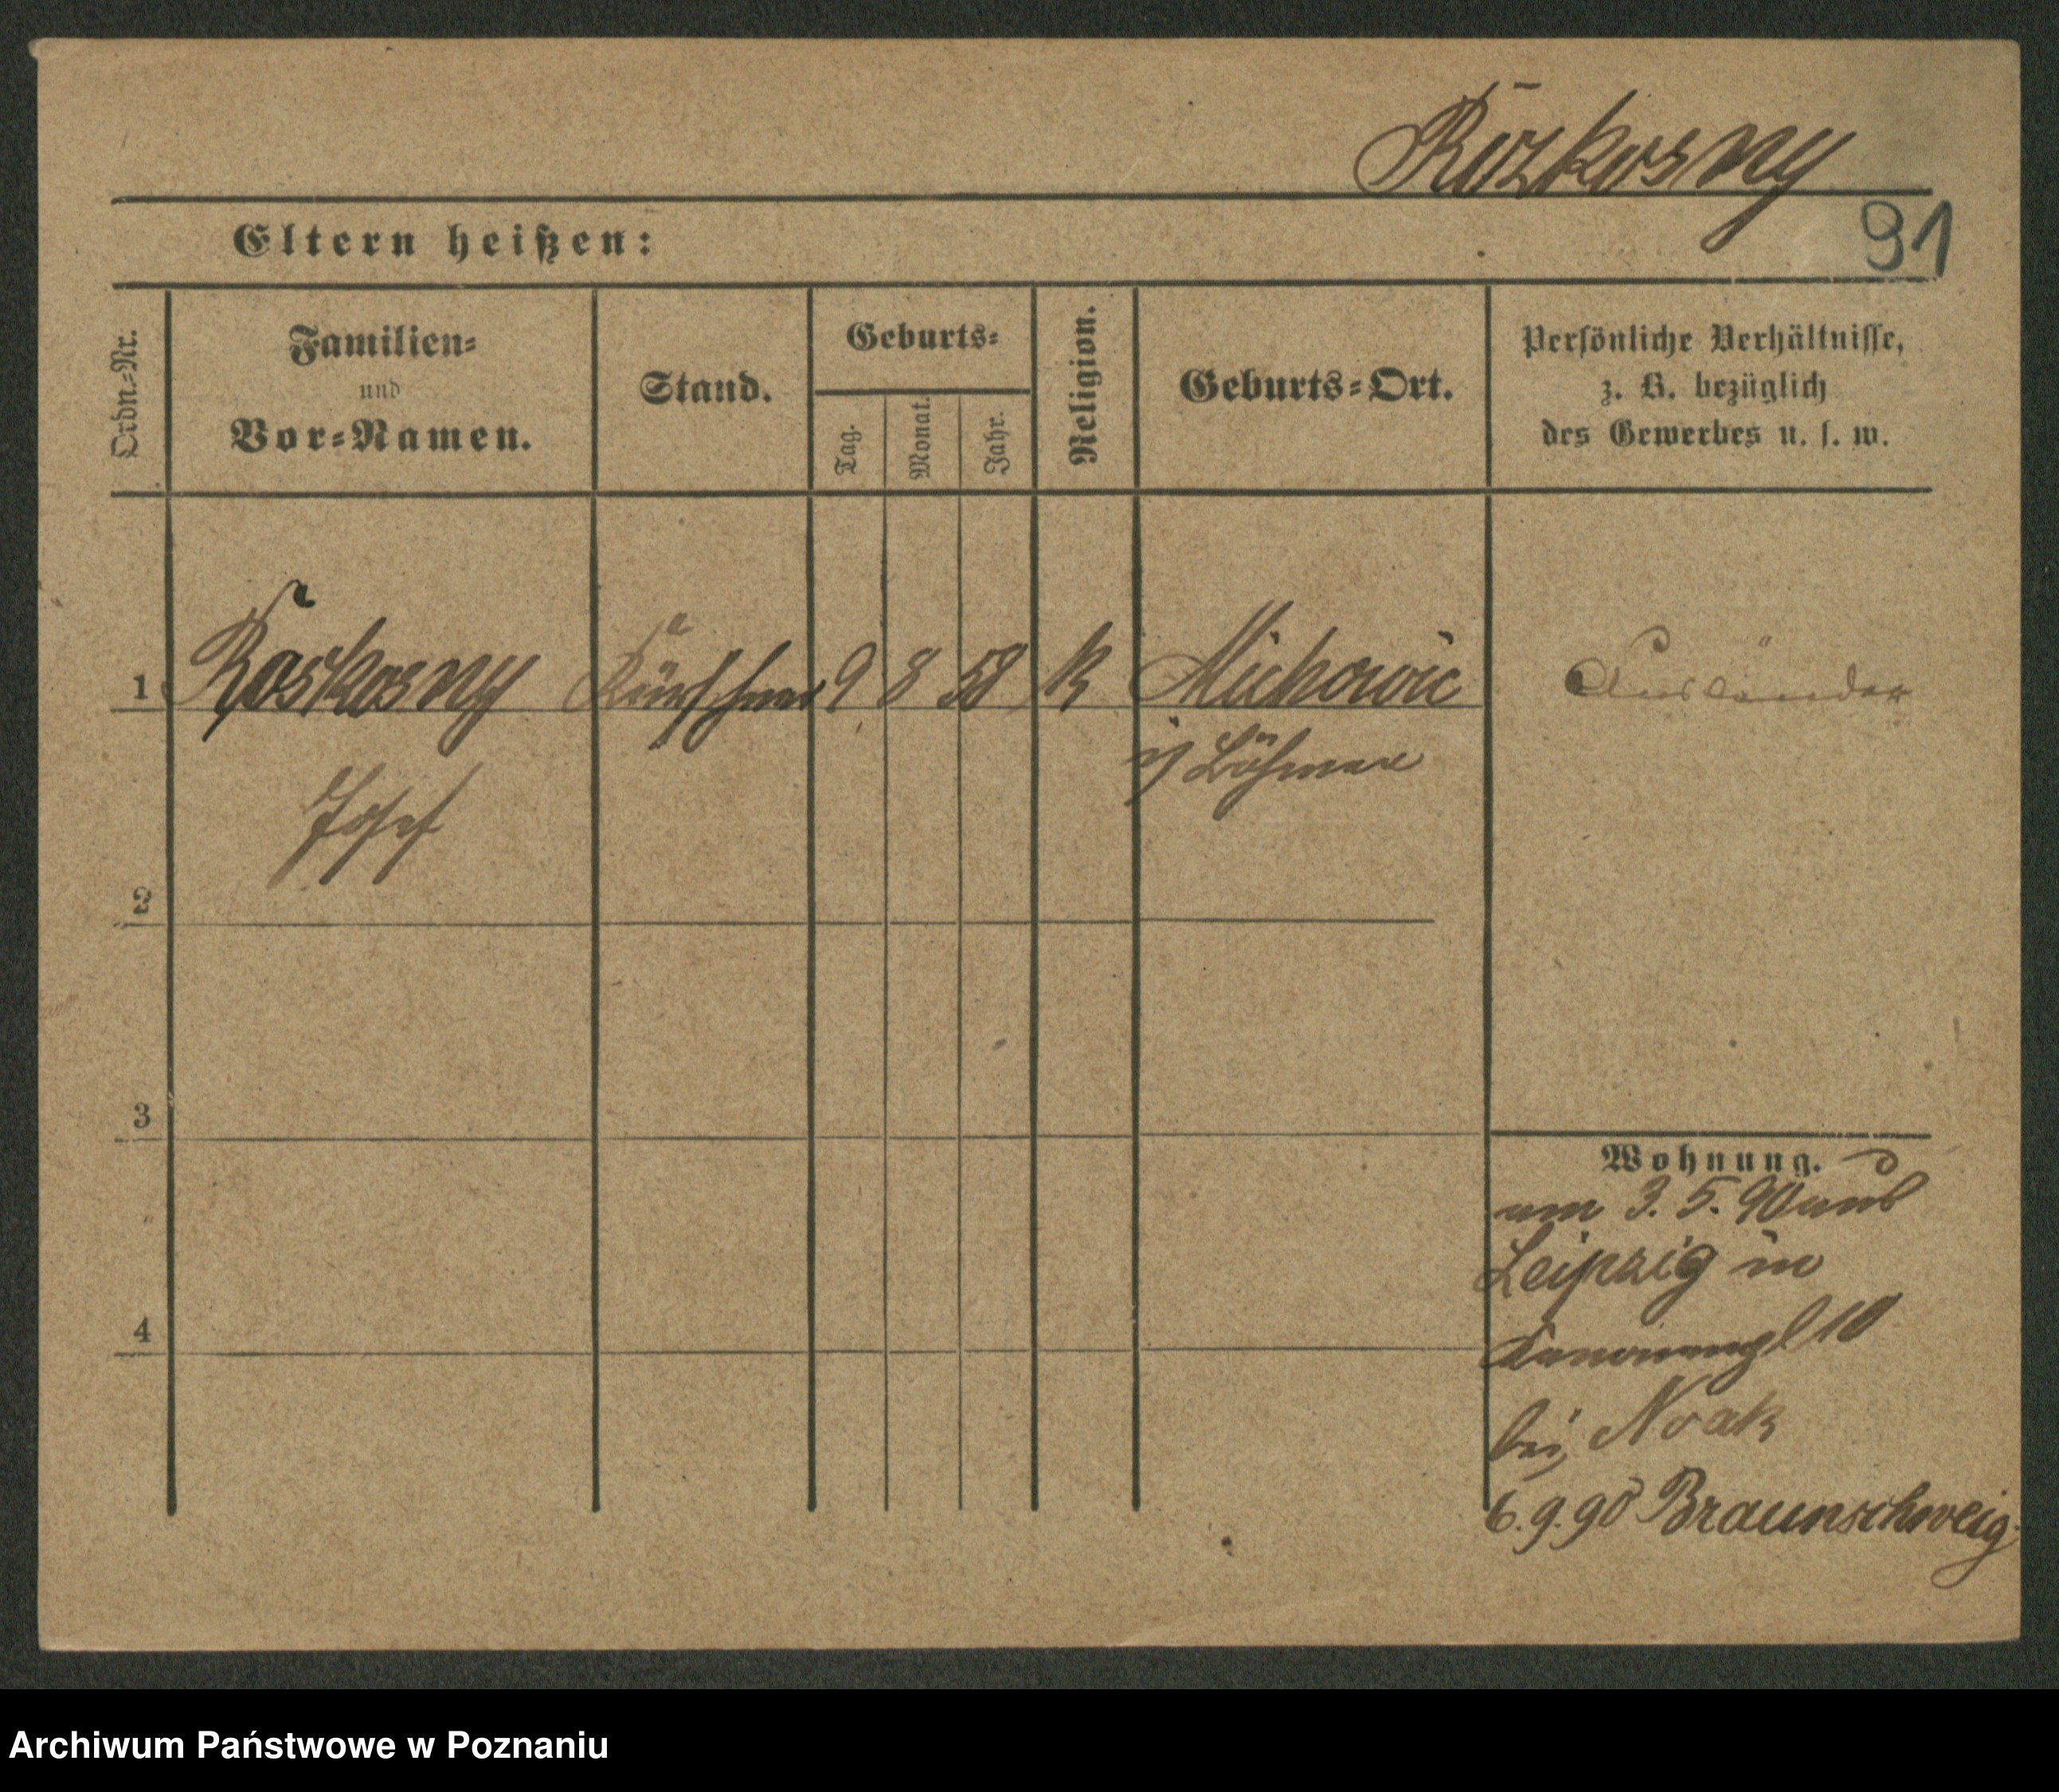 Rozkosny
91
Eltern heißen:
Ordn.-Nr.
Familien-
und
Vor-Namen.
Stand.
Geburts-
Tag.
Monat.
Jahr.
Religion.
Geburts-Ort.
Persönliche Verhältnisse,
z. B. bezüglich
des Gewerbes u. s. w.
1 Roskosny Kürschner 9 8 58 k Michowic Ausländer
i/ Böhmen
Josef
2
3
4
Wohnung.
am 3. 5. 90 aus
Leipzig in
10
bei Noak
6. 9. 90 Braunschweig.
Archiwum Państwowe w Poznaniu